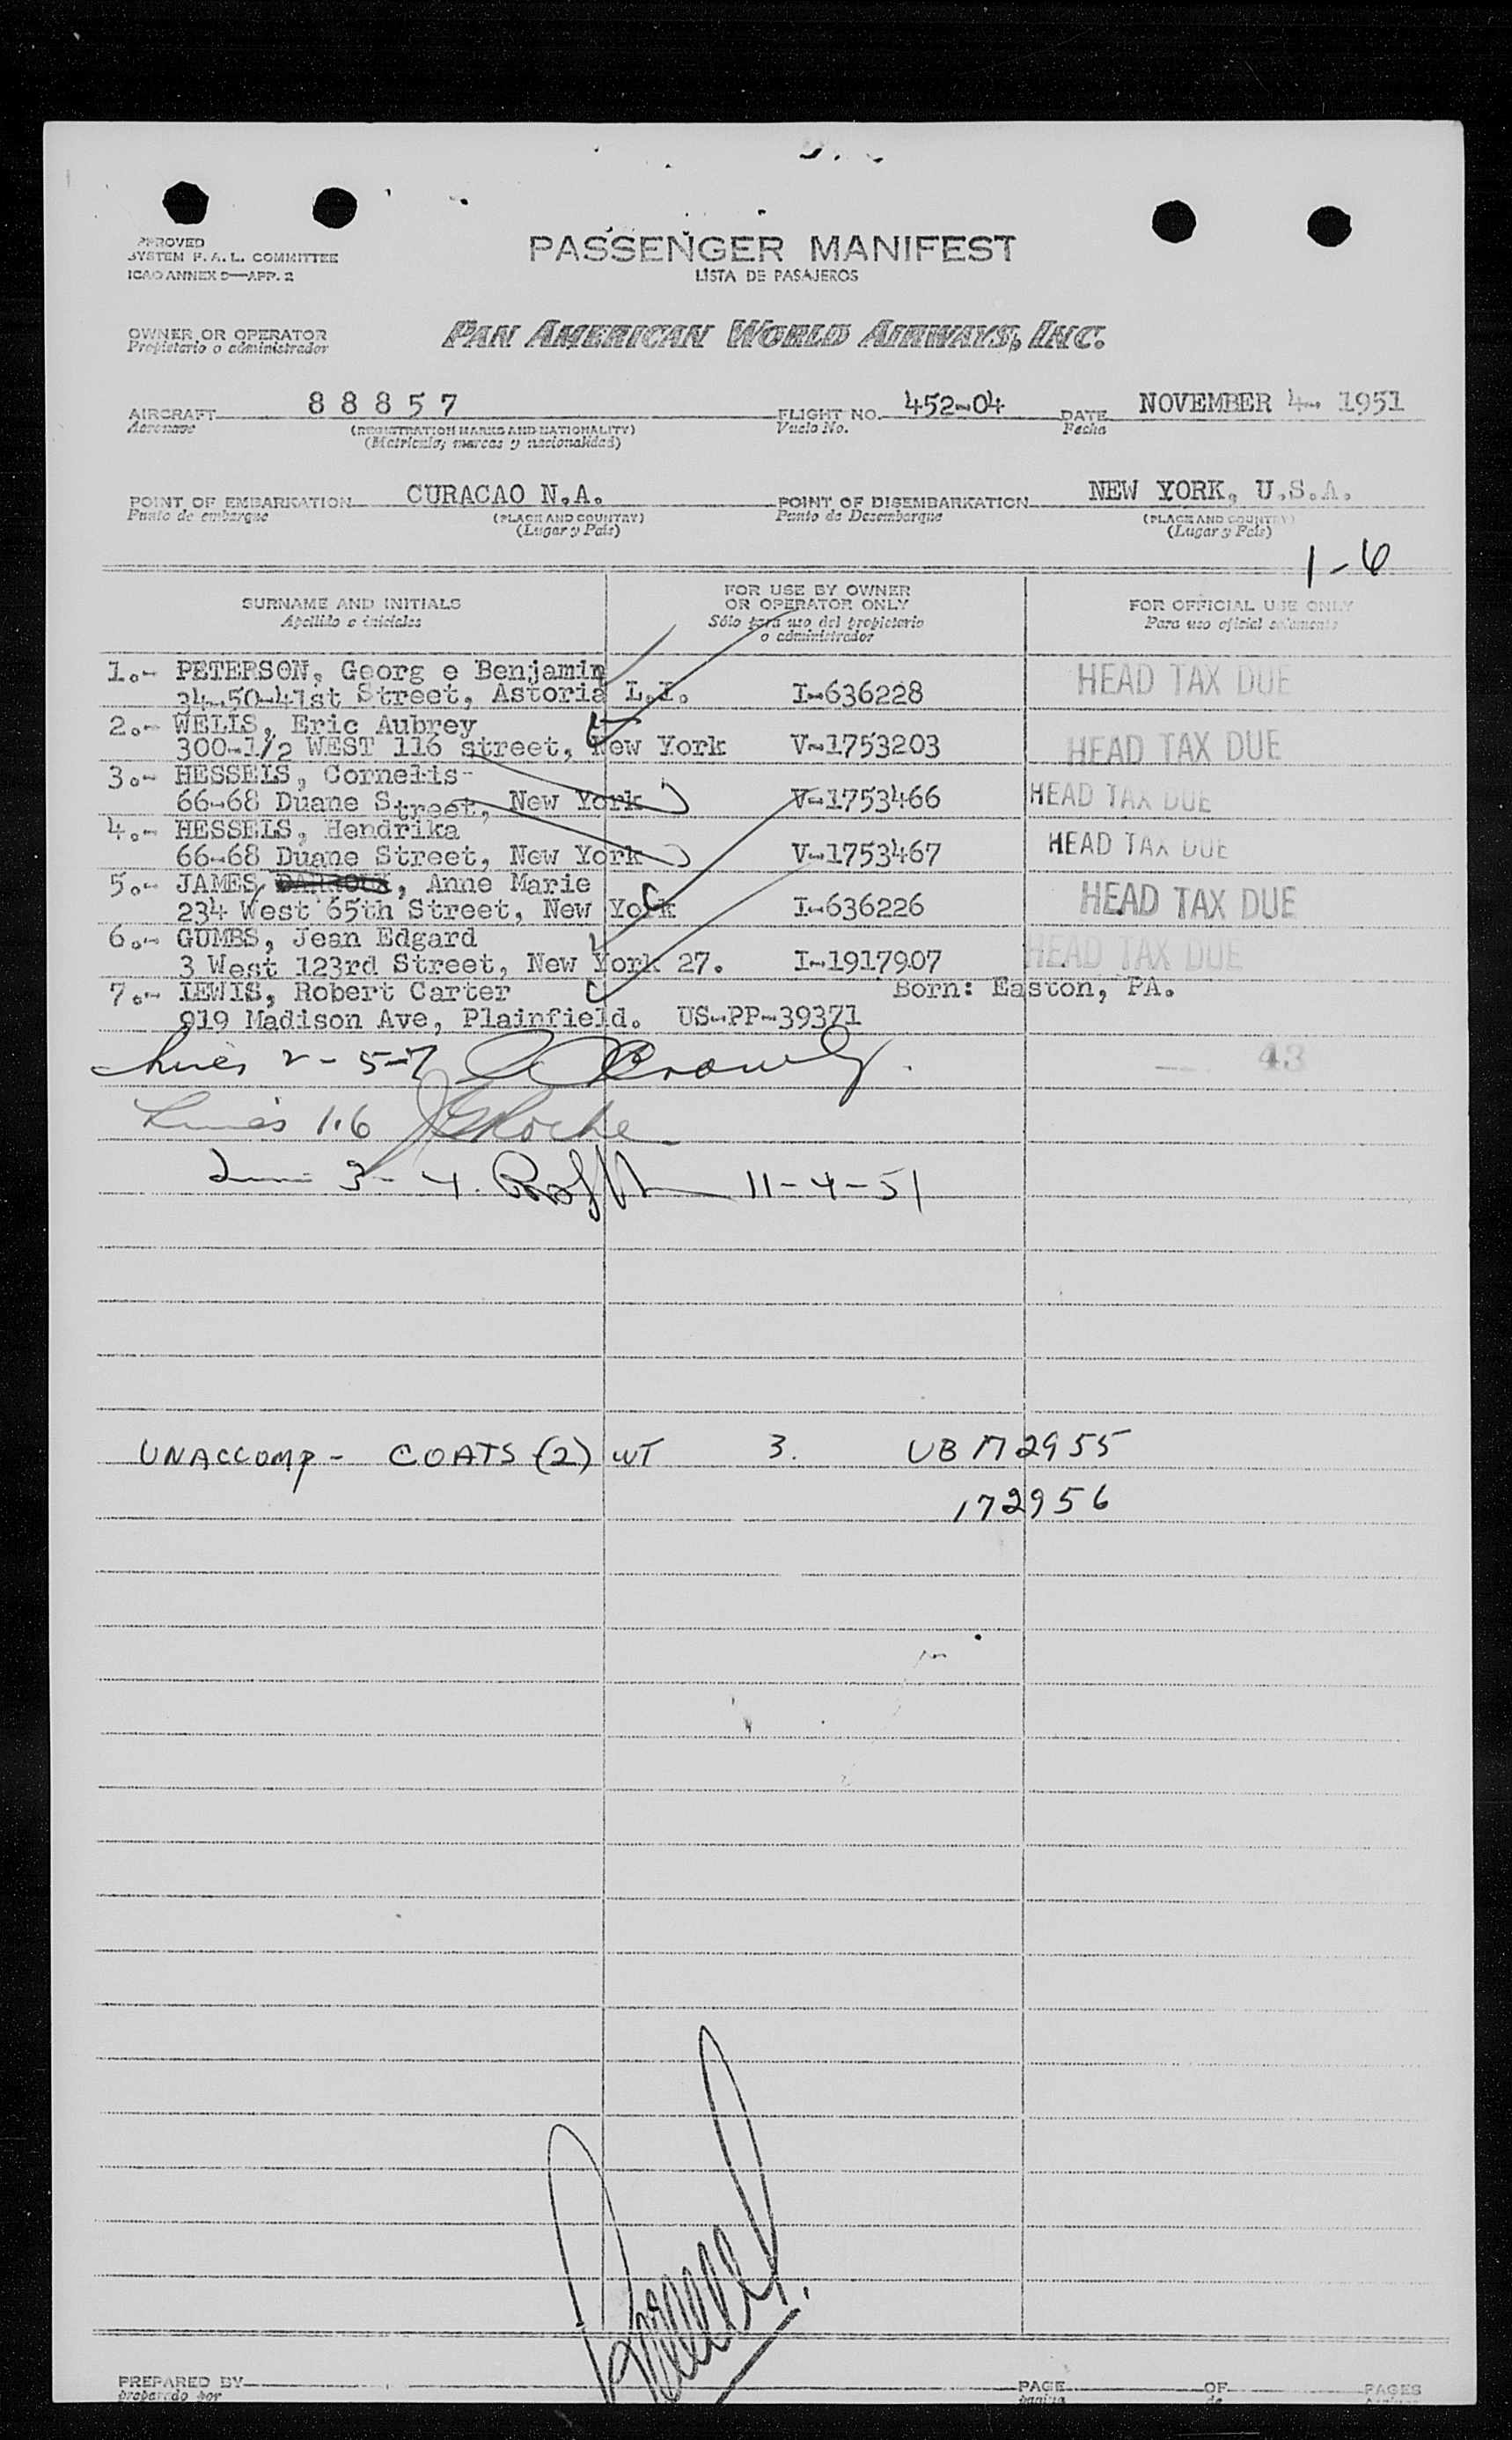 PASSENGER MANIFEST
LISTA DE PASAJEROS
SYSTEM F. A. L. COMMITTEE
ICAO ANNEX 9—APP. 2
OWNER OR OPERATOR
Propietario o administrador
PAN AMERICAN WORLD AIRWAYS, INC.
AIRCRAFT 88857 FLIGHT NO. 452-04 DATE NOVEMBER 4- 1951
Aeronave (REGISTRATION MARKS AND NATIONALITY) Vuelo No. Fecha
(Matricula, marcas y nacionalidad)
POINT OF EMBARKATION CURACAO N.A. POINT OF DISEMBARKATION NEW YORK, U.S.A.
Punto de embarque (PLACE AND COUNTRY) Punto de Desembarque (PLACE AND COUNTRY)
(Lugar y País) (Lugar y País)
1-6
SURNAME AND INITIALS FOR USE BY OWNER OR OPERATOR ONLY FOR OFFICIAL USE ONLY
Apellido e iniciales Sólo para uso del propietario o administrador Para uso oficial solamente
1.- PETERSON, Georg e Benjamin HEAD TAX DUE
34-50-41st Street, Astoria L.I. I-636228
2.- WELIS, Eric Aubrey
300-1/2 WEST 116 street, New York V-1753203 HEAD TAX DUE
3.- HESSELS, Cornelis-
66-68 Duane Street, New York V-1753466 HEAD TAX DUE
4.- HESSELS, Hendrika
66-68 Duane Street, New York V-1753467 HEAD TAX DUE
5.- JAMES, Anne Marie
234 West 65th Street, New York I-636226 HEAD TAX DUE
6.- GUMBS, Jean Edgard
3 West 123rd Street, New York 27. I-1917907 HEAD TAX DUE
7.- LEWIS, Robert Carter Born: Easton, PA.
919 Madison Ave, Plainfield. US-PP-39371
Lines 2-5-7
43
Lines 1.6 Roche
3-4. 11-4-51
UNACCOMP- COATS (2) WT 3. UB 172955
172956
PREPARED BY PAGE OF PAGES
preparado por pagina de